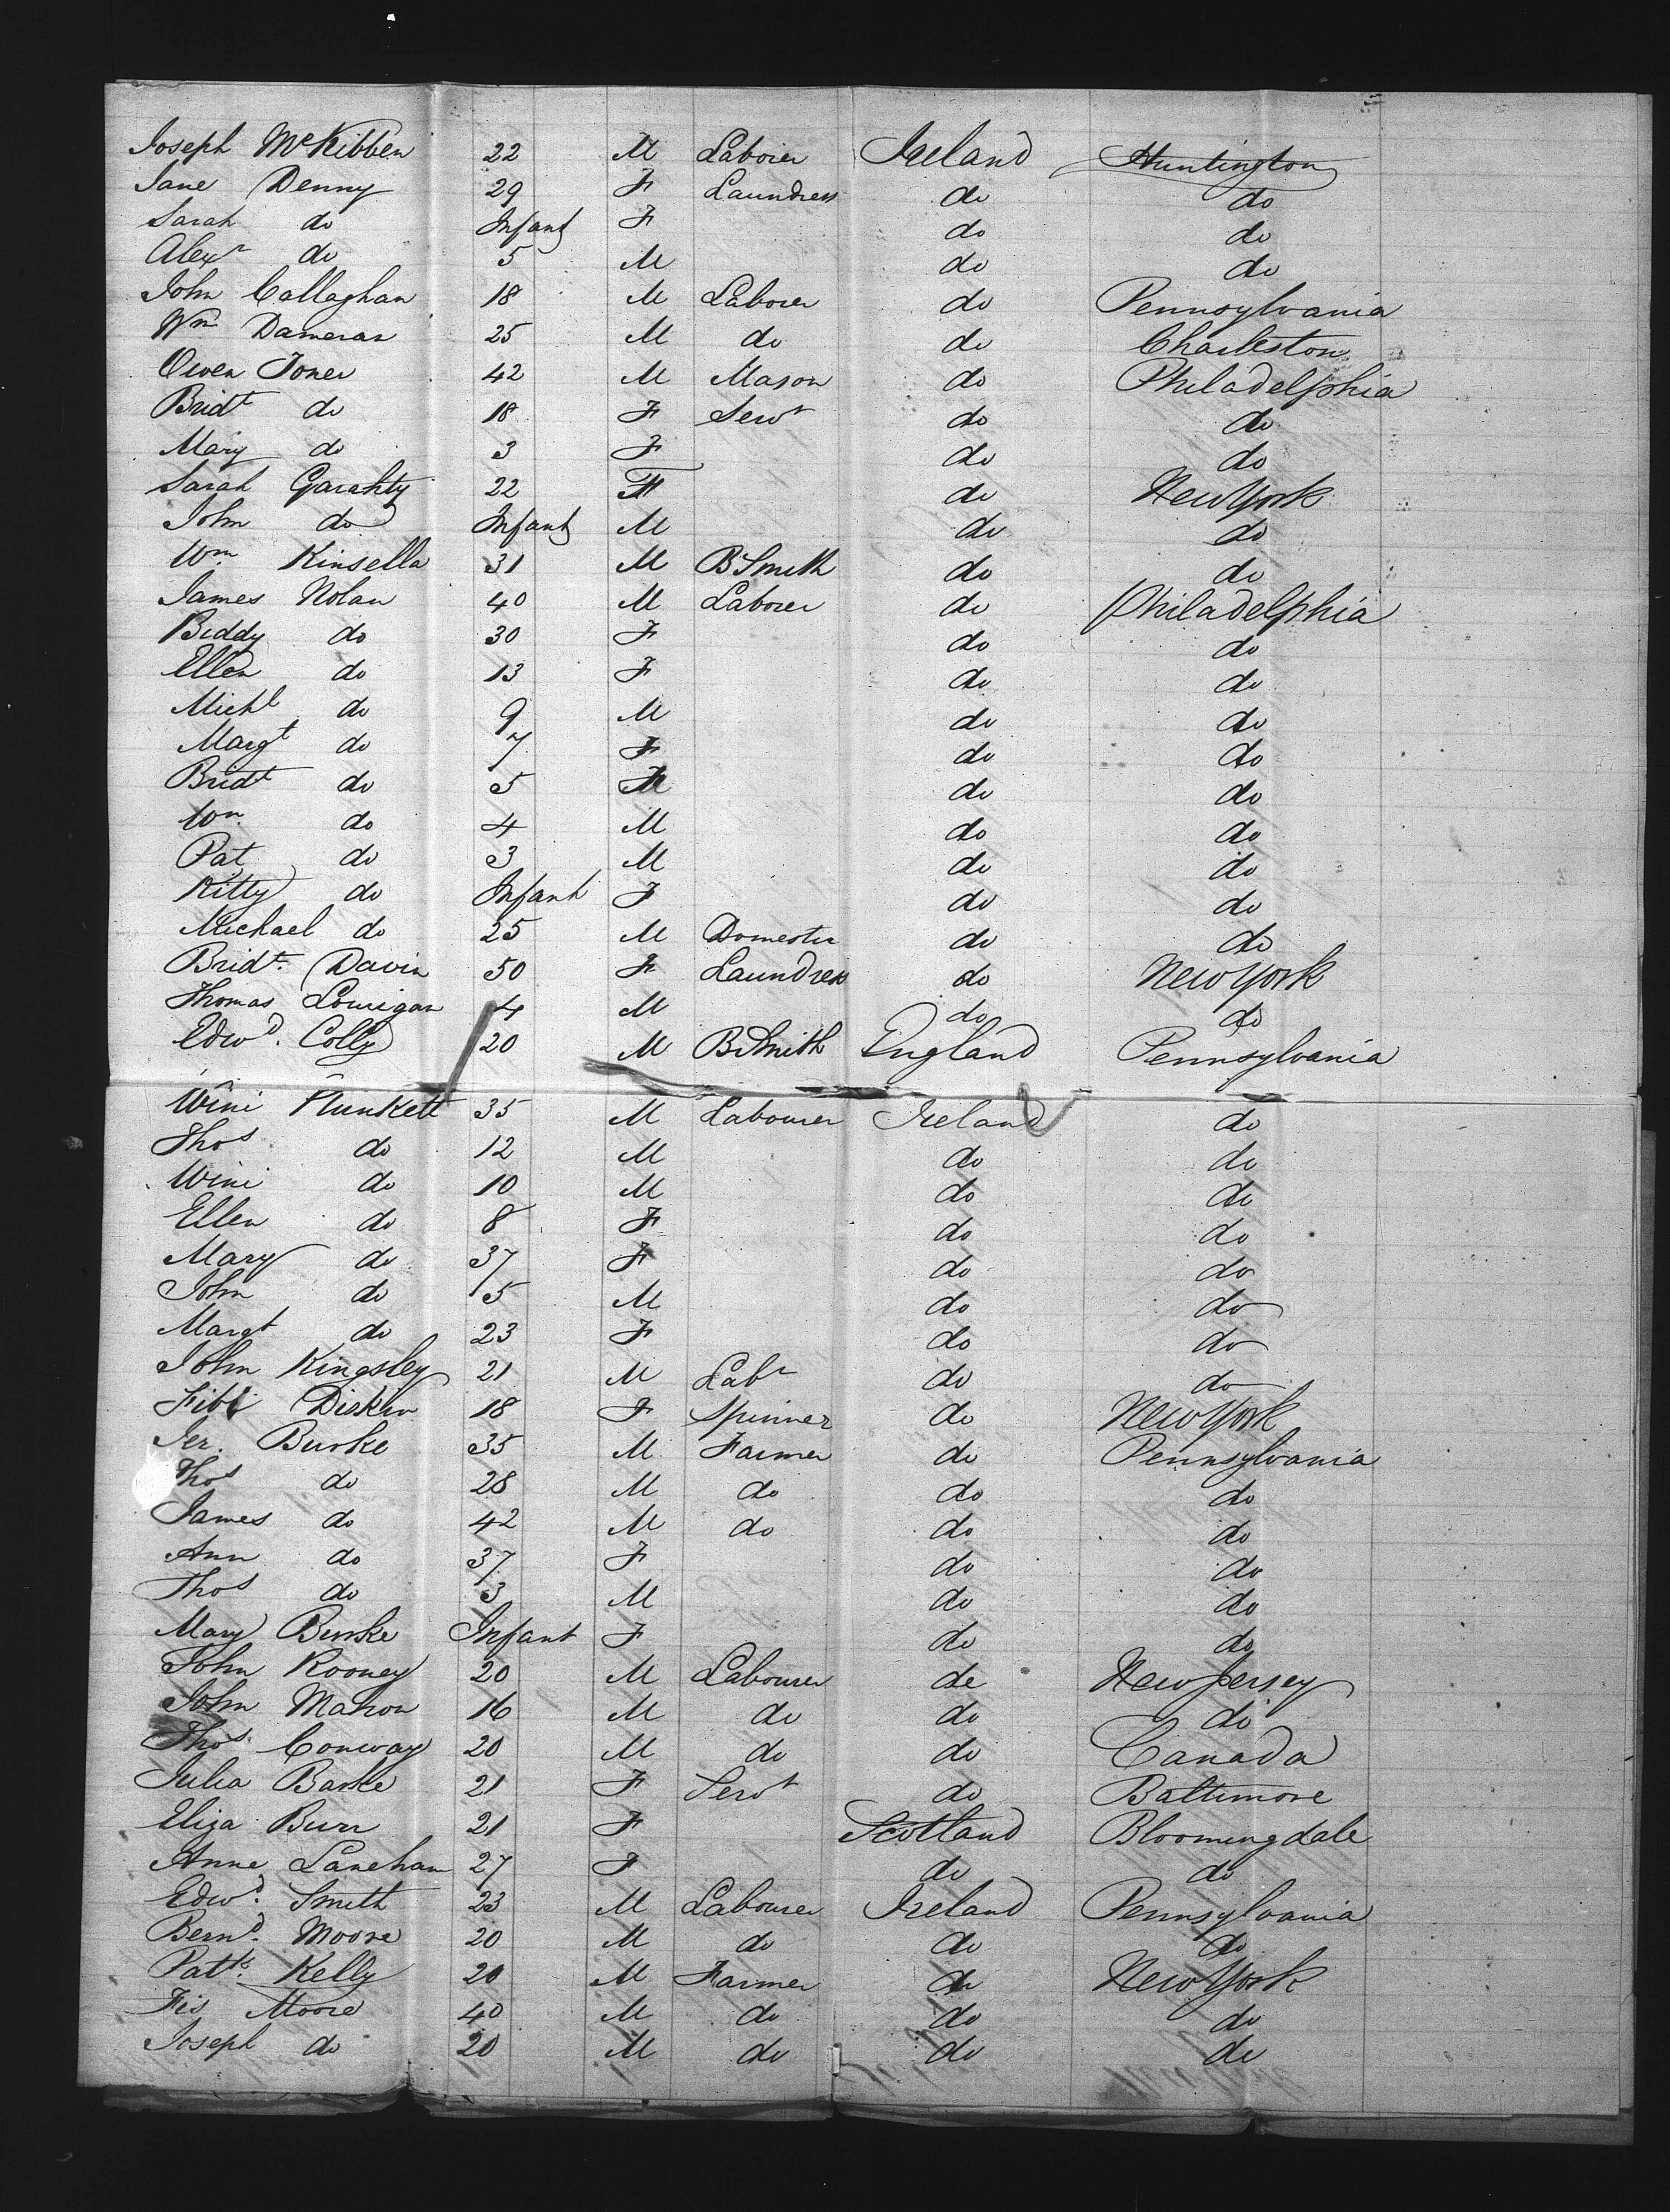 Joseph McKibben 22 M Laborer Ireland Huntington
Jane Denny 29 F Laundress do do
Sarah do Infant F do do
Alexr do 5 M do do
John Callaghan 18 M Laborer do Pennsylvania
Wm Dameran 25 M do do Charleston
Owen Jones 42 M Mason do Philadelphia
Bridt do 18 F Servt do do
Mary do 3 F do do
Sarah Garahty 22 F do New York
John do Infant M do do
Wm Kinsella 31 M B Smith do do
James Nolan 40 M Laborer do Philadelphia
Biddy do 30 F do do
Ellen do 13 F do do
Michl do 9 M do do
Margt do 7 F do do
Bridt do 5 do do
Wm do 4 M do do
Pat do 3 M do do
Kitty do Infant F do do
Michael do 25 M Domestic do do
Bridt. Davin 50 F Laundress do New York
Thomas 4 M do do
Edwd. Colly 20 M B Smith England Pennsylvania
Wini Plunkett 35 M Labourer Ireland do
Thos do 12 M do do
Wini do 10 M do do
Ellen do 8 F do do
Mary do 37 F do do
John do 5 M do do
Margt do 23 F do do
John Kingsley 21 M Labr do do
Diskin 18 F Spinner do New York
Jer. Burke 35 M Farmer do Pennsylvania
Thos do 28 M do do do
James do 42 M do do do
Ann do 37 F do do
Thos do 3 M do do
Mary Burke Infant F do do
John Rooney 20 M Labourer do New Jersey
John Mahon 16 M do do do
Thos. Conway 20 M do do Canada
Julia Burke 21 F Servt do Baltimore
Eliza Burr 21 F Scotland Bloomingdale
Anne Laneham 27 F do do
Edwd. Smith 23 M Labourer Ireland Pennsylvania
Bernd. Moore 20 M do do do
Patk. Kelly 20 M Farmer do New York
Fis Moore 40 M do do do
Joseph do 20 M do do do